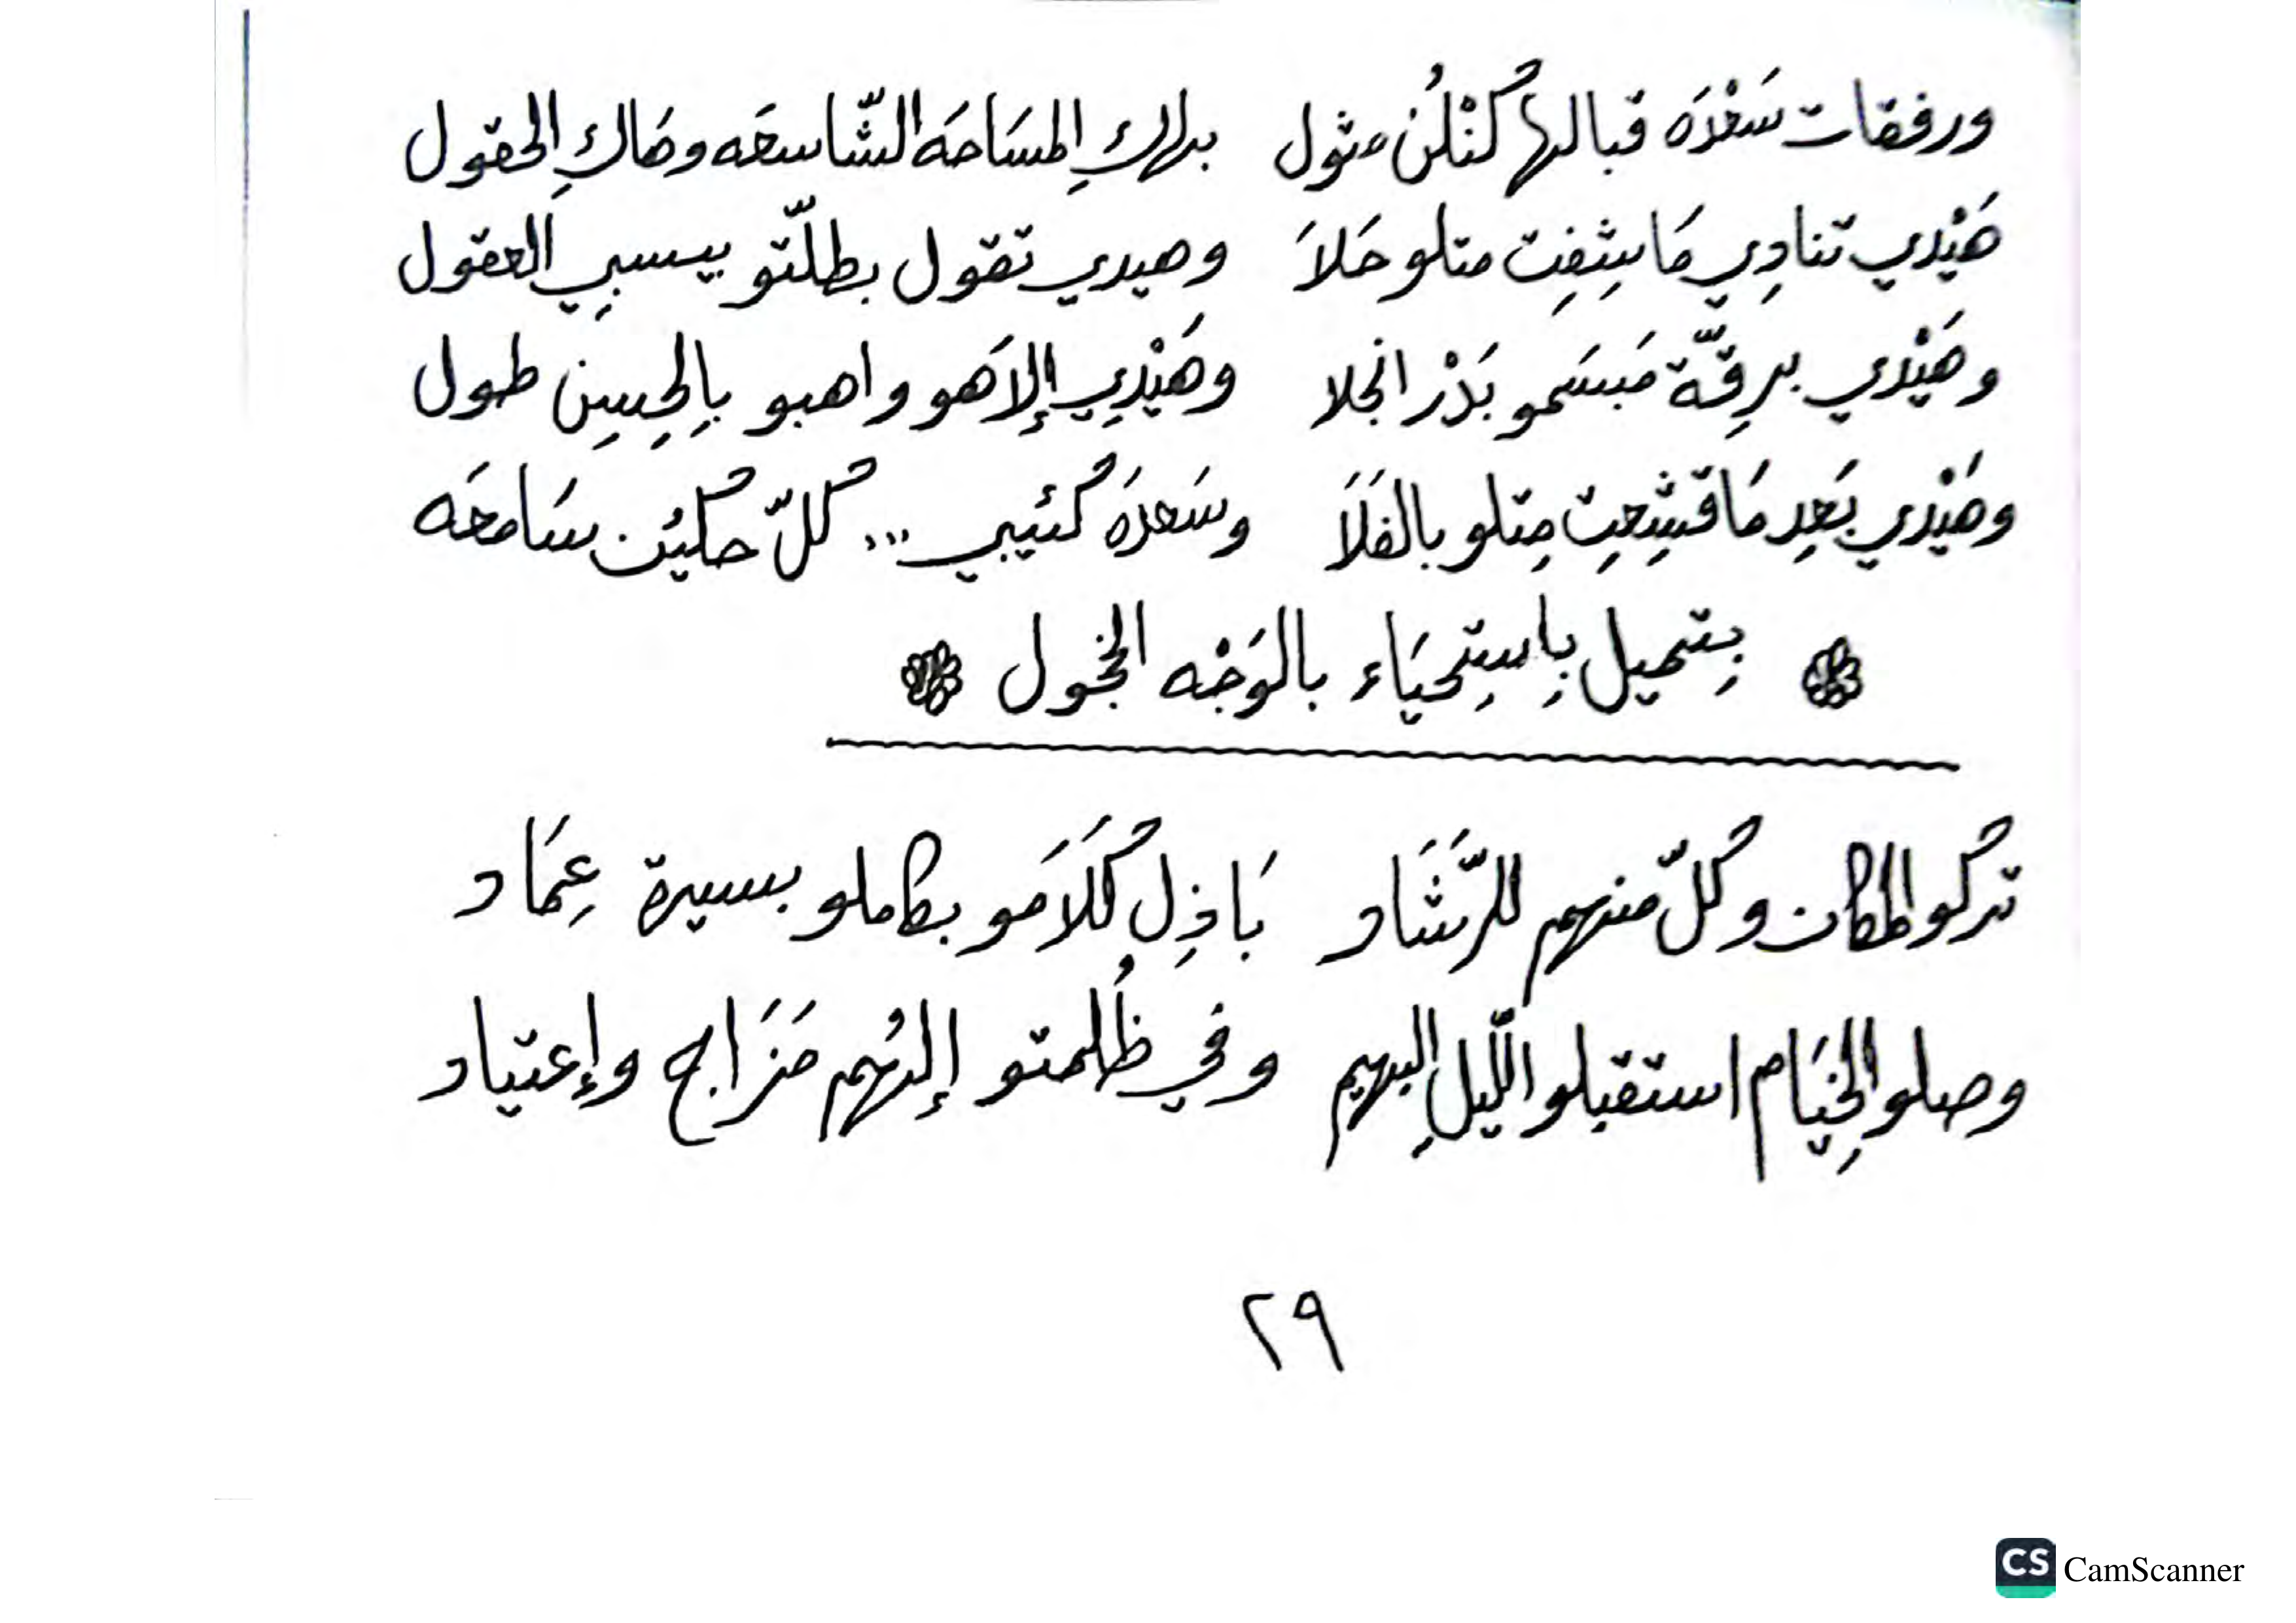 ورفقات سَعْدَه قبالها كُنْلُن مثول بهاكِ المسَاحَه الشّاسعَه وهَاكِ الحقول
هَيْدي تنادِي مَا شِفِت متلو حَلاَ وهيدي تقول بطلّتو بيسبِي العقول
وهَيْدي برِقّة مَبسَمو بَدْر انجلا وهَيْدِي إلاَهو واهبو بِالحِسِن طول
وهَيْدي بَعِد مَا قشِعِت مِتلو بالفَلاَ وسَعدَه كُئيبي ... كُلّ حكيُن سَامعَه
بِتميل بِاستِحيَاء بالوَجْه الخجول
تركُو المكان وكُلّ منهم للرَّشَاد بَاذِل كُلاَمَو بكاملو بسيرة عِمَاد
وصلو الخِيَام استقبلو اللّيلِ البهيم وفي ظُلمتو إلهُم مَزَاج وإعتياد
٢٩
CS CamScanner